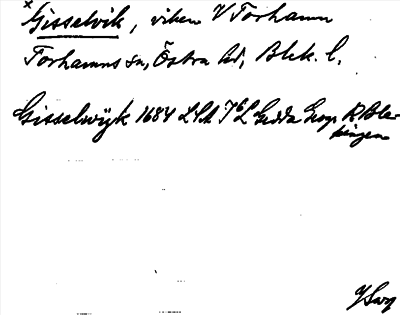 ×Gisselvik, viken V Torhamn
Torhamns sn, Östra hd, Blek. l.
Gisselwijk 1684 LSA Gedda Geogr. K Ble-
kingen